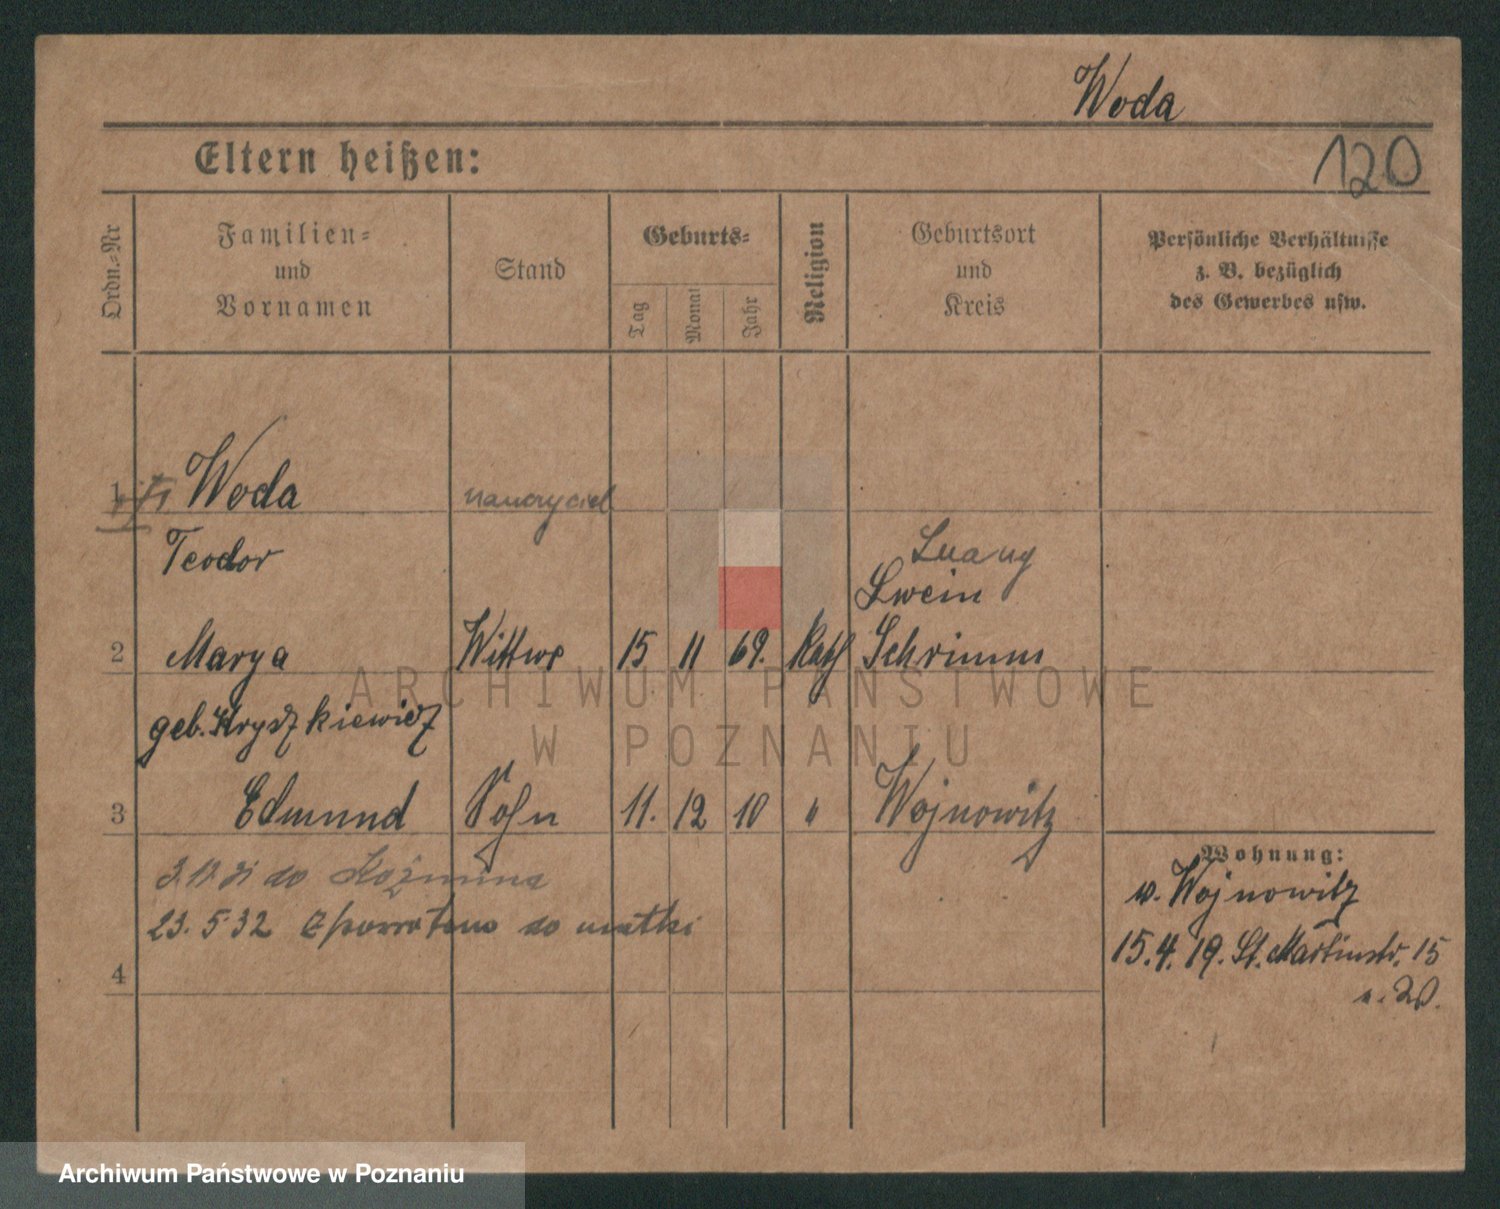 Woda
Eltern heißen:
120
Ordn.-Nr
Familien-
und
Vornamen
Stand
Geburts-
Tag
Monat
Jahr
Religion
Geburtsort
und
Kreis
Persönliche Verhältnisse
z. B. bezüglich
des Gewerbes usw.
1 Woda nauczyciel
Teodor
Lwein
2 Marya Wittwe 15 11 69. Kath Schrimm
geb. Kryszkiewicz
3 Edmund Sohn 11. 12 10 " Wojnowitz
do Koźmina
23. 5. 32 z powrotem do matki
4
Wohnung:
v. Wojnowitz
15. 4. 19. St. Martinstr. 15
ARCHIWUM PAŃSTWOWE
W POZNANIU
Archiwum Państwowe w Poznaniu